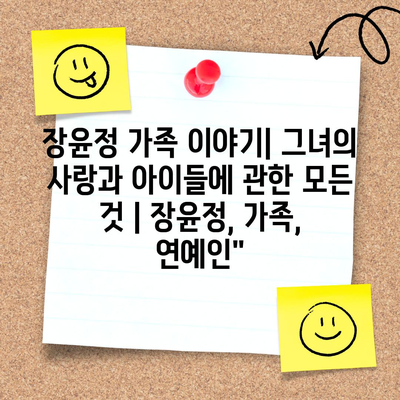 장윤정 가족 이야기| 그녀의
사랑과 아이들에 관한 모든
것 | 장윤정, 가족,
연예인"